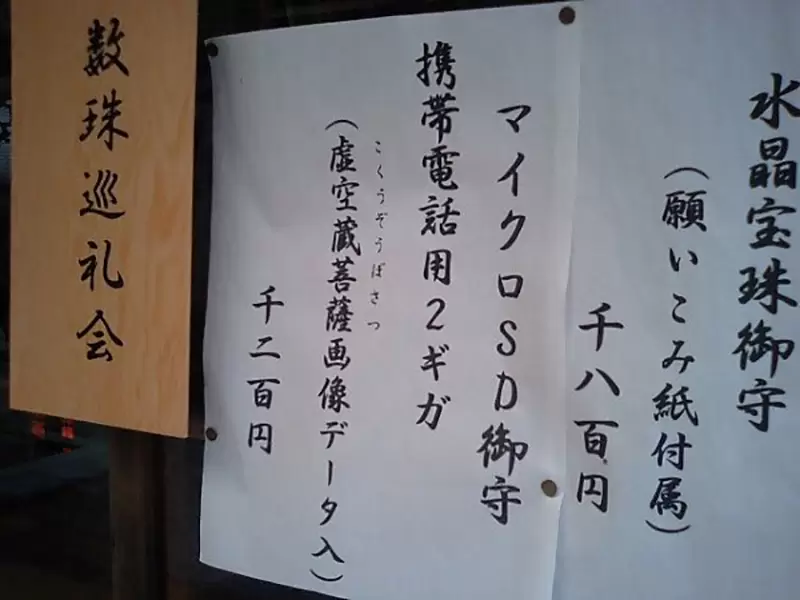 水晶宝珠御守
（願いこみ紙付属）
千八百円
マイクロSD御守
携帯電話用2ギガ
こくうぞうぼさつ
（虚空蔵菩薩画像データ入）
千二百円
数珠巡礼会